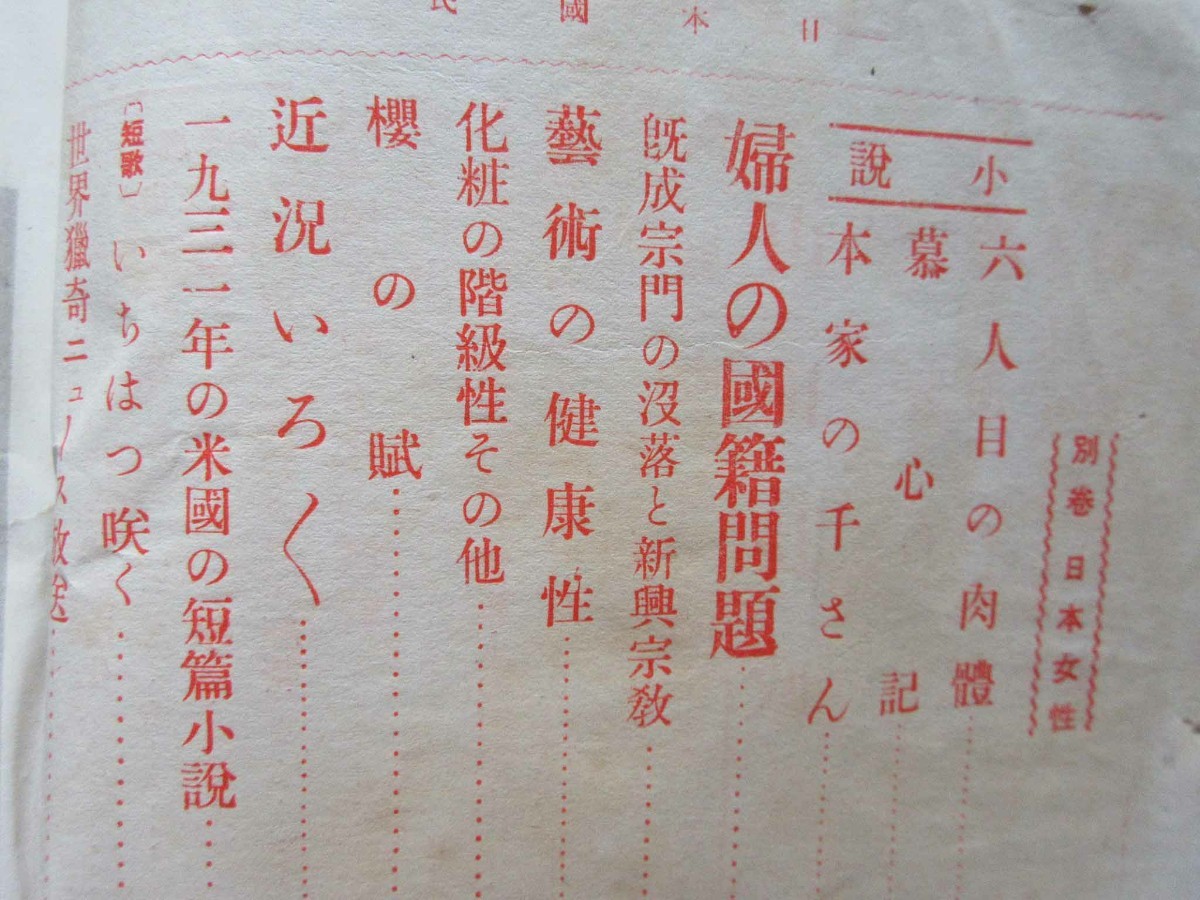 一日本國民
別巻日本女性
小說
六人目の肉體
慕心記
本家の千さん
婦人の國籍問題
既成宗門の沒落と新興宗教
藝術の健康性
化粧の階級性その他
櫻の賦
近況いろ〱
一九三一年の米國の短篇小說
〔短歌〕いちはつ咲く
世界獵奇ニュース放送